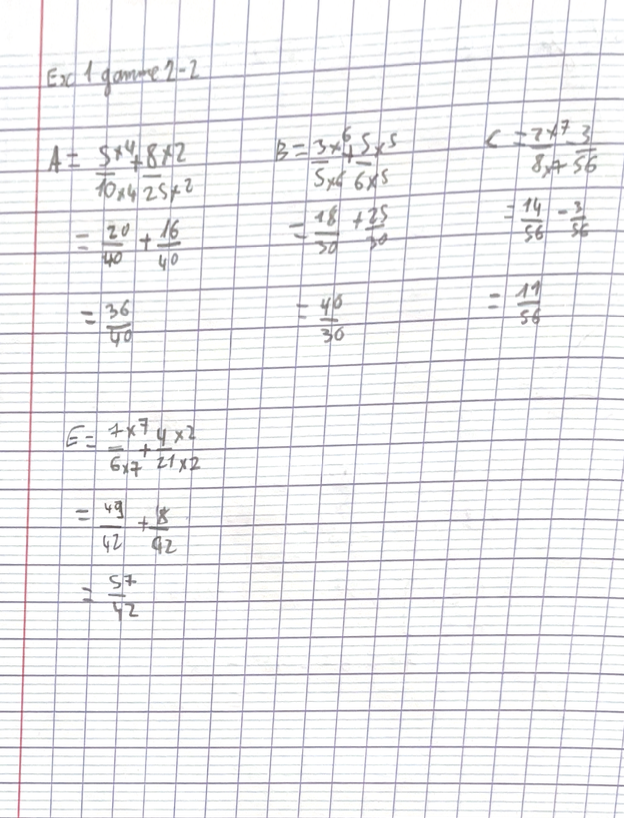 Ex 1 gamme 2-2
A = 5×4/10×4 + 8×2/25×2
= 20/40 + 16/40
= 36/40
B = 3×6/5×6 + 5×5/6×5
= 18/30 + 25/30
= 40/30
C = 2×7/8×7 - 3/56
= 14/56 - 3/56
= 11/56
E = 7×7/6×7 + 4×2/21×2
= 49/42 + 8/42
= 57/42